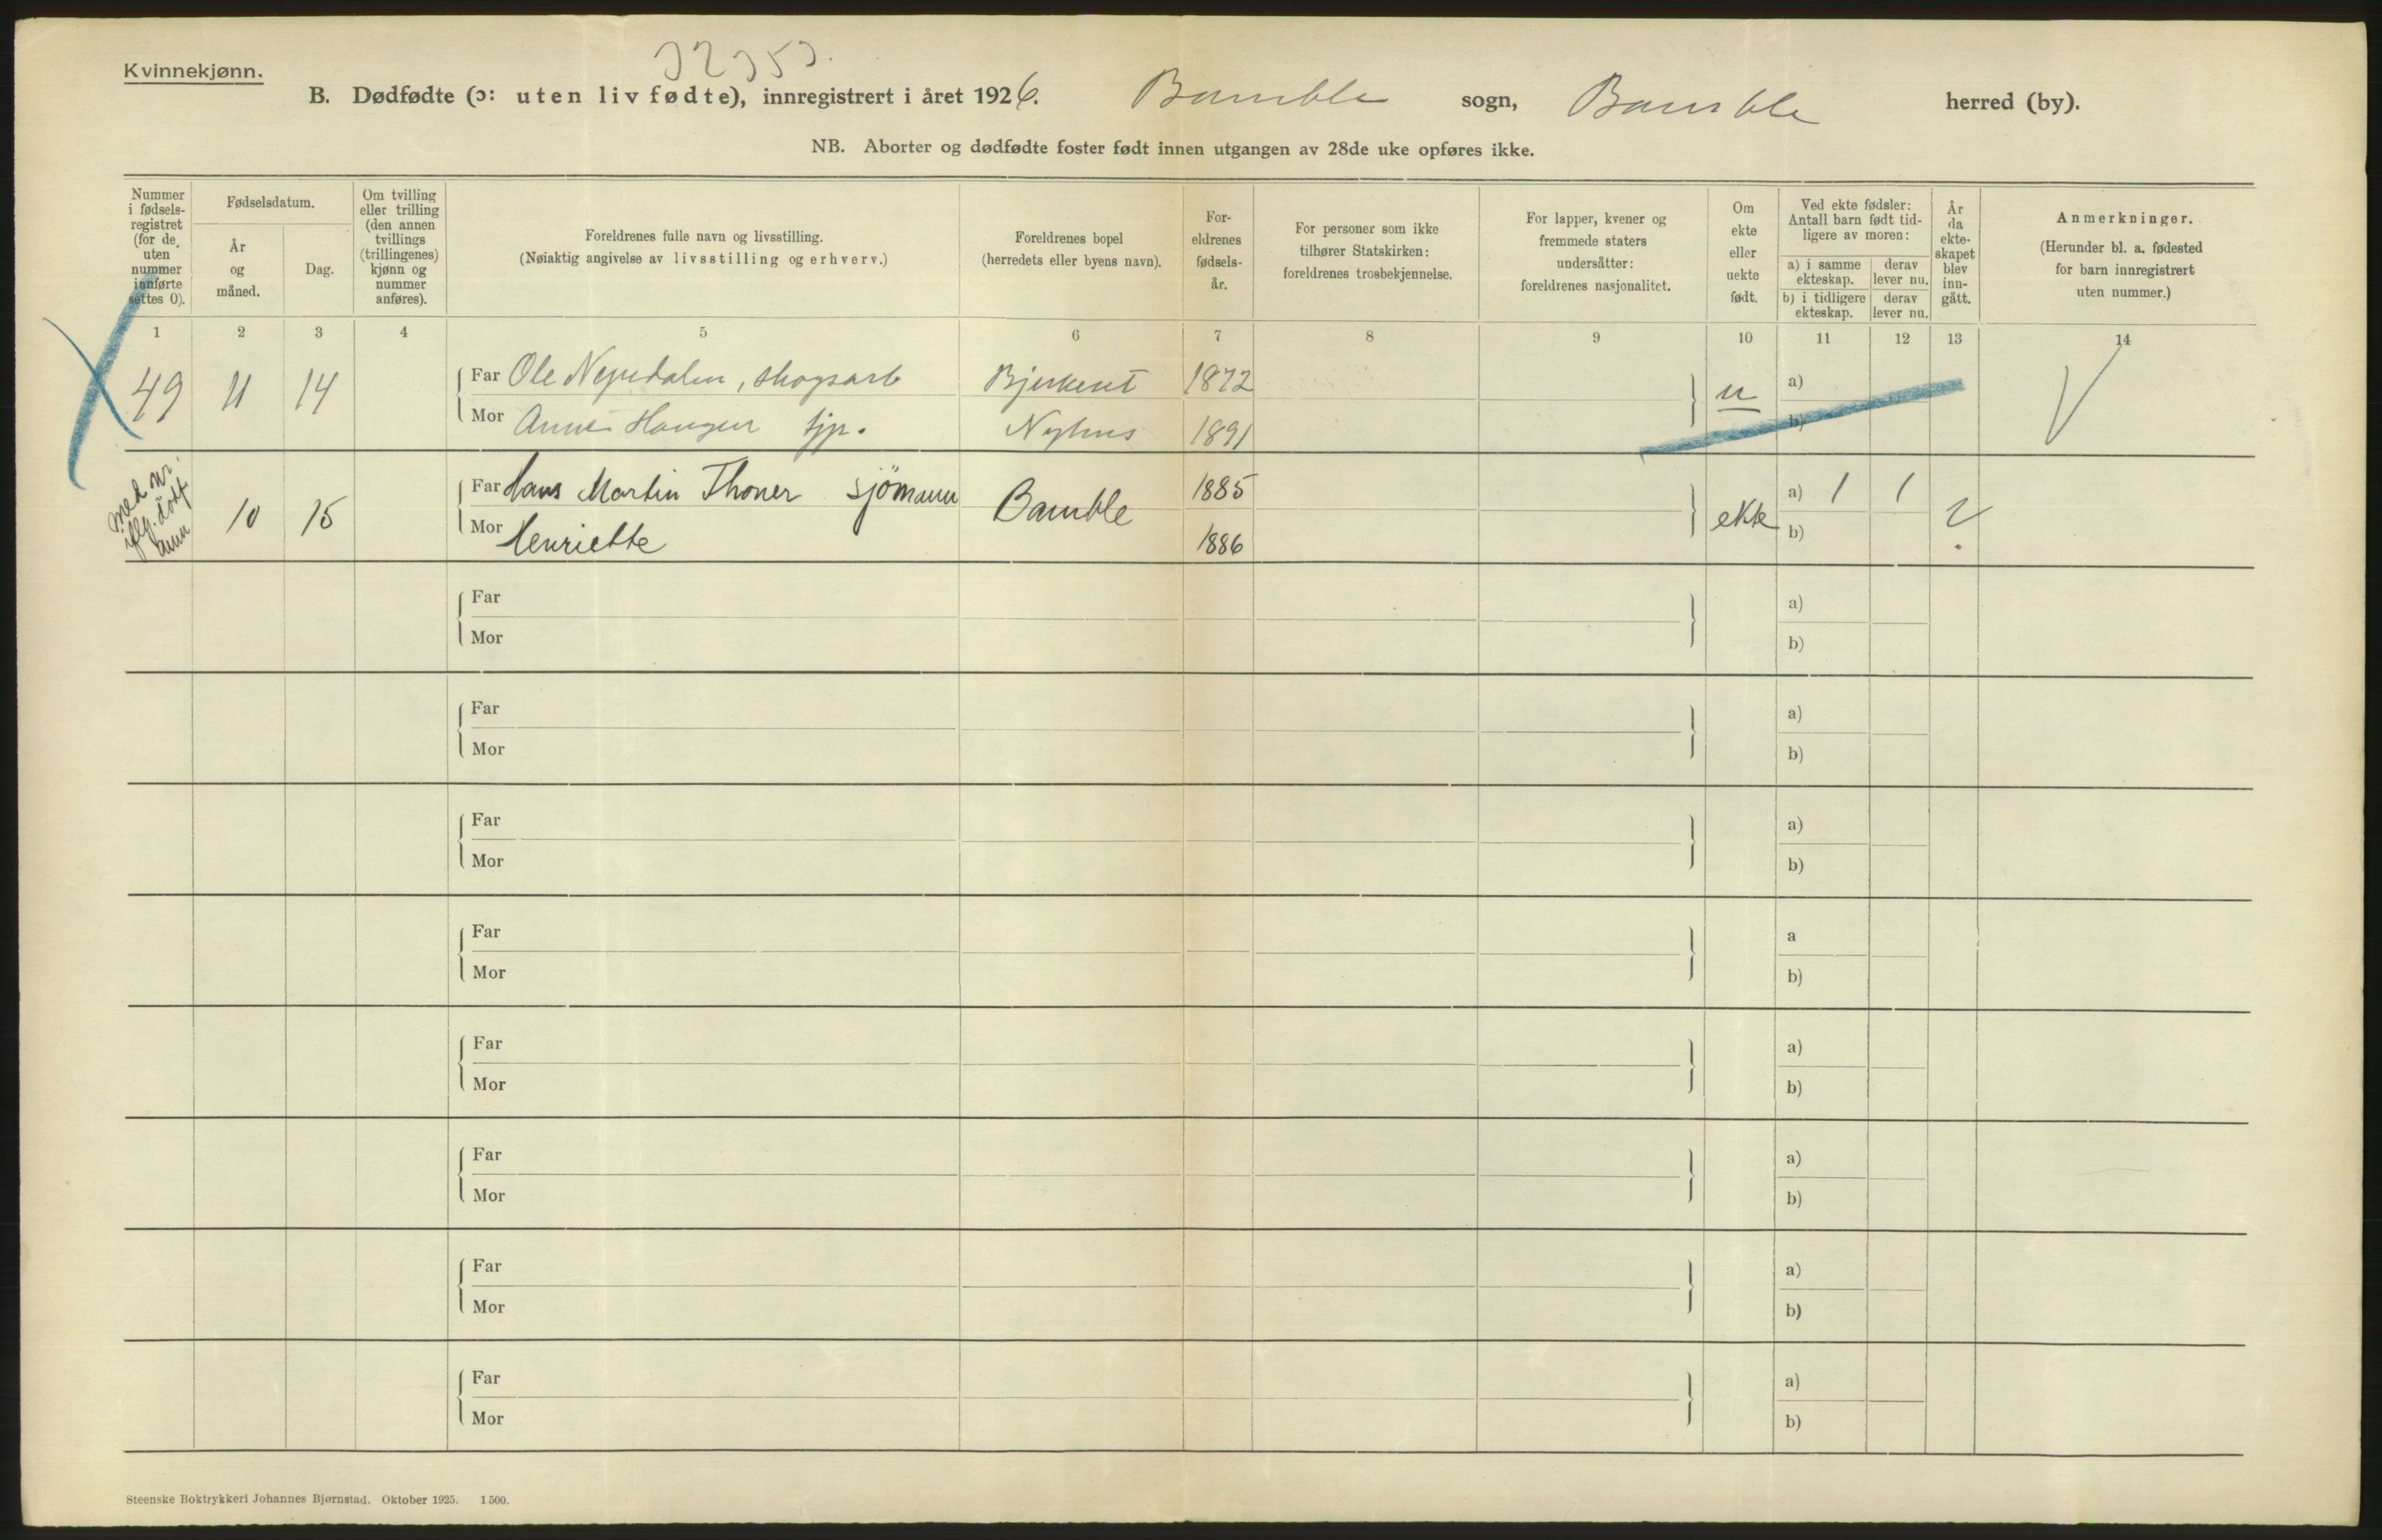 Kvinnekjønn.
B. Dødfødte (ɔ: uten liv fødte), innregistrert i året 1926. Bamble sogn, Bamble herred (by).
NB. Aborter og dødfødte foster født innen utgangen av 28de uke opføres ikke.
Nummer i fødsels-registret (for de uten nummer innførte settes 0).
Fødselsdatum.
År og måned.
Dag.
Om tvilling eller trilling (den annen tvillings (trillingenes) kjønn og nummer anføres).
Foreldrenes fulle navn og livsstilling.
(Nøiaktig angivelse av livsstilling og erhverv.)
Foreldrenes bopel
(herredets eller byens navn).
For-eldrenes fødsels-år.
For personer som ikke tilhører Statskirken: foreldrenes trosbekjennelse.
For lapper, kvener og fremmede staters undersåtter: foreldrenes nasjonalitet.
Om ekte eller uekte født.
Ved ekte fødsler: Antall barn født tid-ligere av moren:
a) i samme ekteskap.
derav lever nu.
b) i tidligere ekteskap.
derav lever nu.
År da ekte-skapet blev inn-gått.
Anmerkninger.
(Herunder bl. a. fødested for barn innregistrert uten nummer.)
1 2 3 4 5 6 7 8 9 10 11 12 13 14
49 11 14 Far Ole 1872 u a)
Mor Nyhus 1891 b)
10 15 Far Hans Martin Thoner sjömann Bamble 1885 ekte a) 1 1 ?
Mor Henriette 1886 b)
Far a)
Mor b)
Far a)
Mor b)
Far a)
Mor b)
Far a
Mor b)
Far a)
Mor b)
Far a)
Mor b)
Far a)
Mor b)
Far a)
Mor b)
Steenske Boktrykkeri Johannes Bjørnstad. Oktober 1925. 1500.